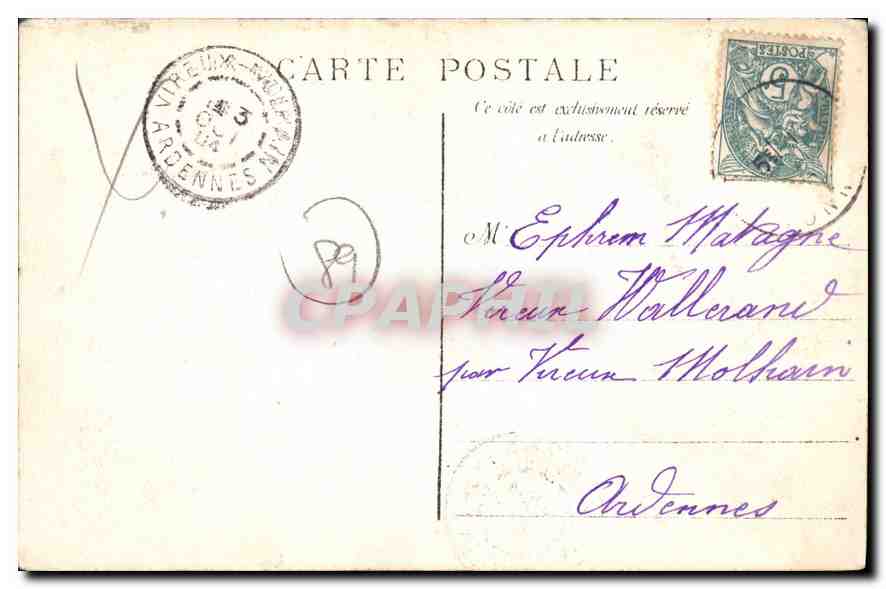 CARTE POSTALE
Ce côté est exclusivement réservé
a l'adresse.
VIREUX-MOLHAIN
3
OCT
04
ARDENNES
POSTES
5
89
CPAPHIL
M' Ephrem Matagne
Vireux Wallerand
par Vireux Molhain
Ardennes